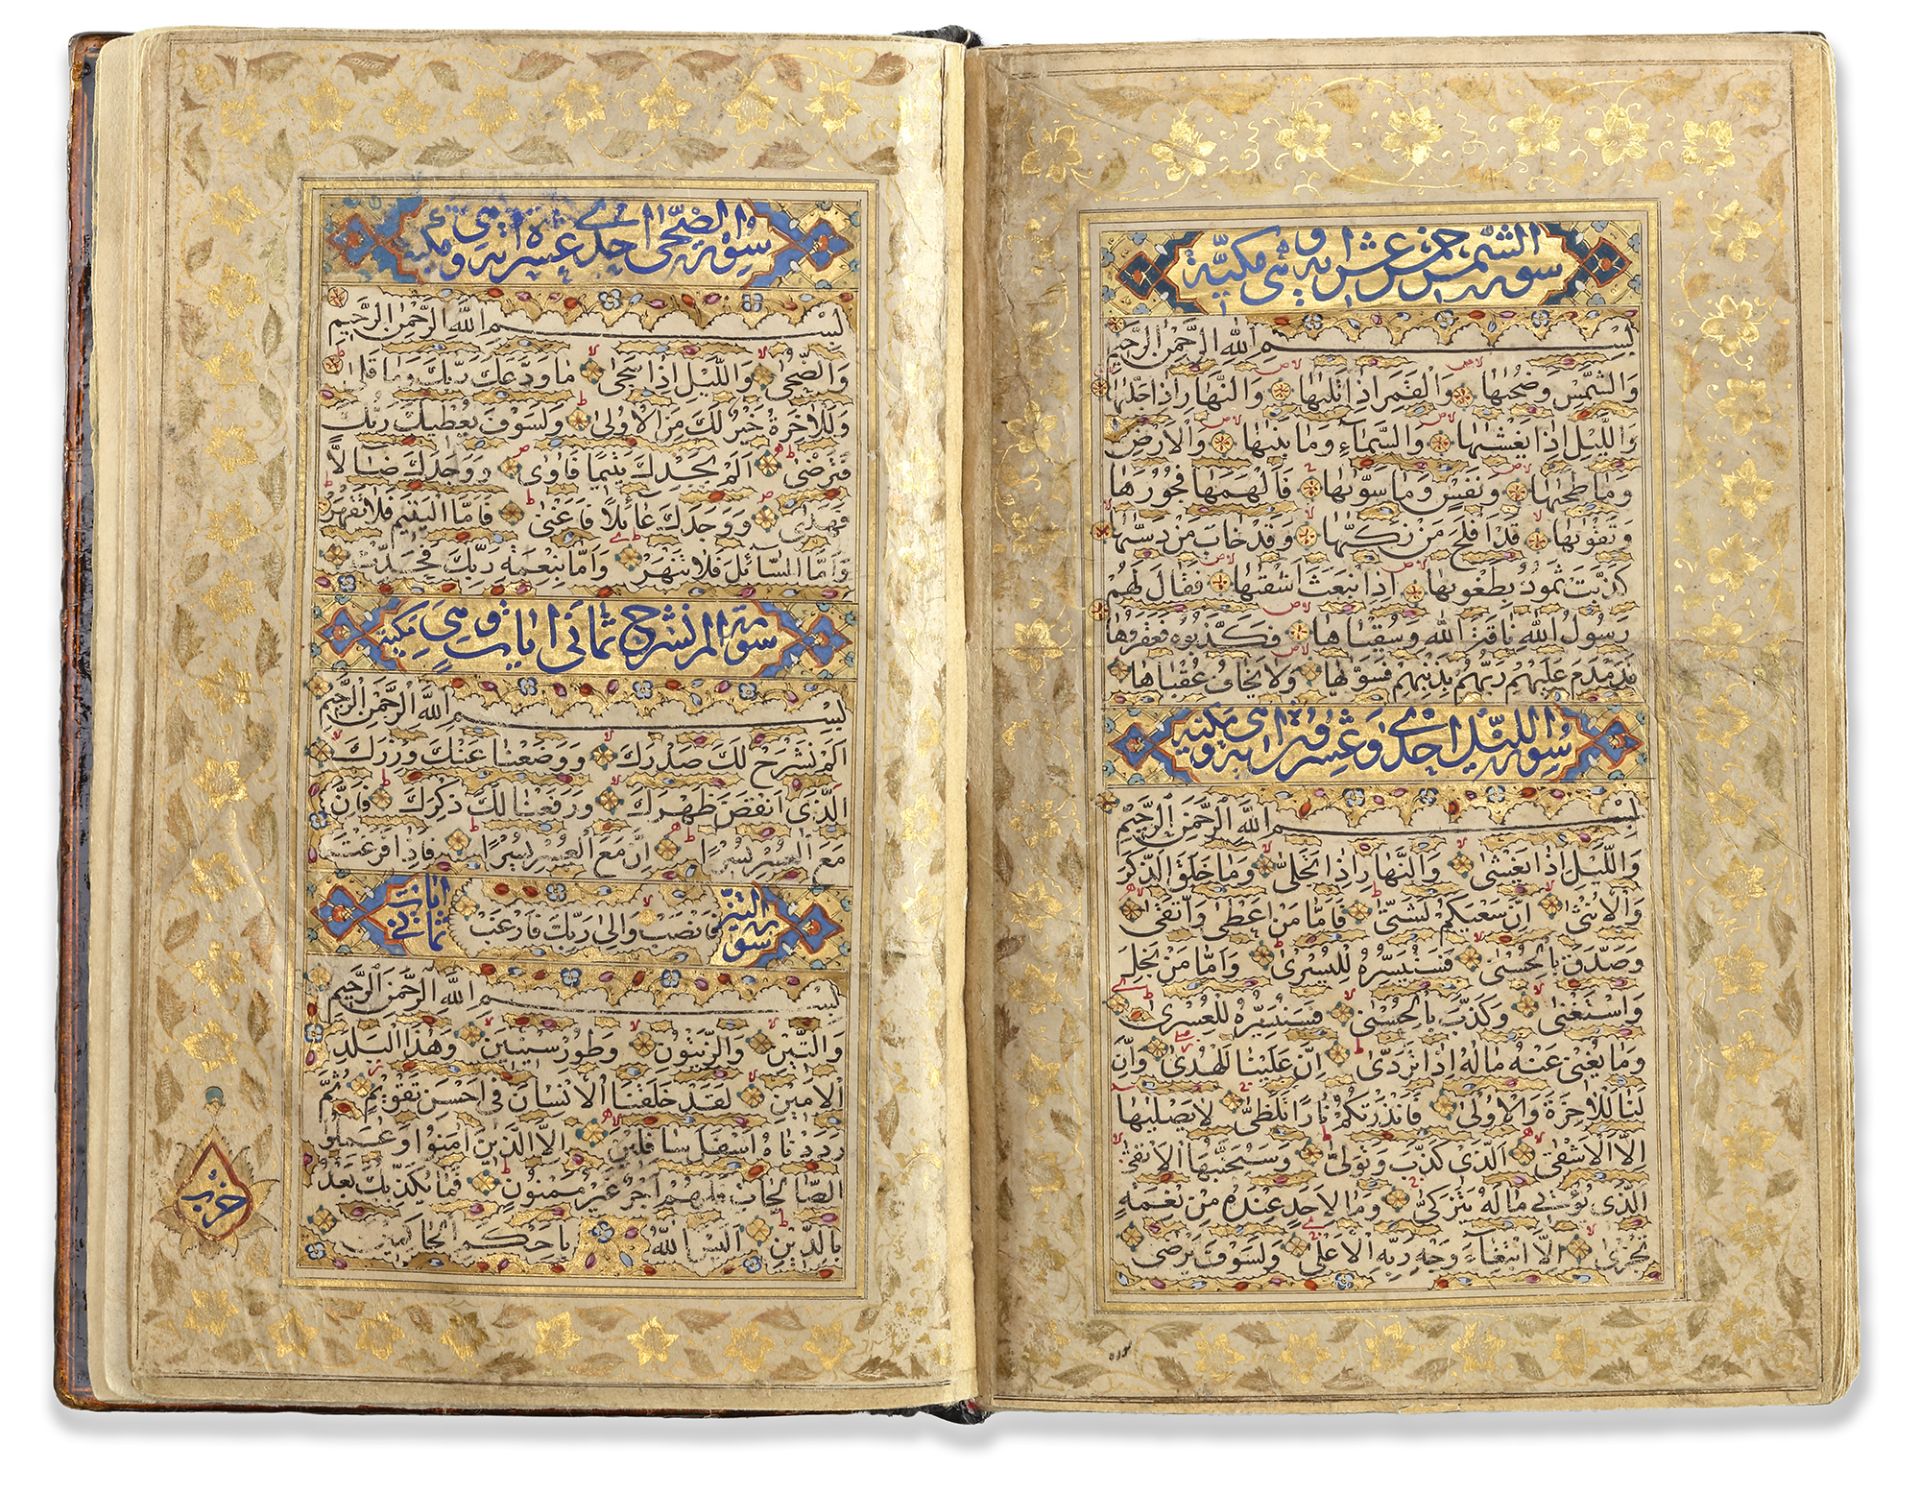 سورة الشمس خمس عشر اية وهي مكية
بسم الله الرحمن الرحيم
والشمس وضحيها والقمر اذا تليها والنهار اذا جليها
والليل اذا يغشيها والسماء وما بنيها والارض
وما طحيها ونفس وما سويها فالهمها فجورها
وتقويها قد افلح من زكيها وقد خاب من دسيها
كذبت ثمود بطغويها اذ انبعث اشقيها فقال لهم
رسول الله ناقة الله وسقياها فكذبوه فعقروها
فدمدم عليهم ربهم بذنبهم فسويها ولا يخاف عقباها
سورة الليل احدى وعشرون اية وهي مكية
بسم الله الرحمن الرحيم
والليل اذا يغشى والنهار اذا تجلى وما خلق الذكر
والانثى ان سعيكم لشتى فاما من اعطى واتقى
وصدق بالحسنى فسنيسره لليسرى واما من بخل
واستغنى وكذب بالحسنى فسنيسره للعسرى
وما يغني عنه ماله اذا تردى ان علينا للهدى وان
لنا للاخرة والاولى فانذرتكم نارا تلظى لا يصليها
الا الاشقى الذي كذب وتولى وسيجنبها الاتقى
الذي يؤتي ماله يتزكى وما لاحد عنده من نعمة
تجزى الا ابتغاء وجه ربه الاعلى ولسوف يرضى
سورة الضحى احدى عشرة اية وهي مكية
بسم الله الرحمن الرحيم
والضحى والليل اذا سجى ما ودعك ربك وما قلى
وللاخرة خير لك من الاولى ولسوف يعطيك ربك
فترضى الم يجدك يتيما فاوى ووجدك ضالا
فهدى ووجدك عائلا فاغنى فاما اليتيم فلا تقهر
واما السائل فلا تنهر واما بنعمة ربك فحدث
سورة الم نشرح ثماني ايات وهي مكية
بسم الله الرحمن الرحيم
الم نشرح لك صدرك ووضعنا عنك وزرك
الذي انقض ظهرك ورفعنا لك ذكرك فان
مع العسر يسرا ان مع العسر يسرا فاذا فرغت
فانصب والى ربك فارغب
سورة التين ثماني ايات
بسم الله الرحمن الرحيم
والتين والزيتون وطور سينين وهذا البلد
الامين لقد خلقنا الانسان في احسن تقويم ثم
رددناه اسفل سافلين الا الذين امنوا وعملوا
الصالحات فلهم اجر غير ممنون فما يكذبك بعد
بالدين اليس الله باحكم الحاكمين
حزب